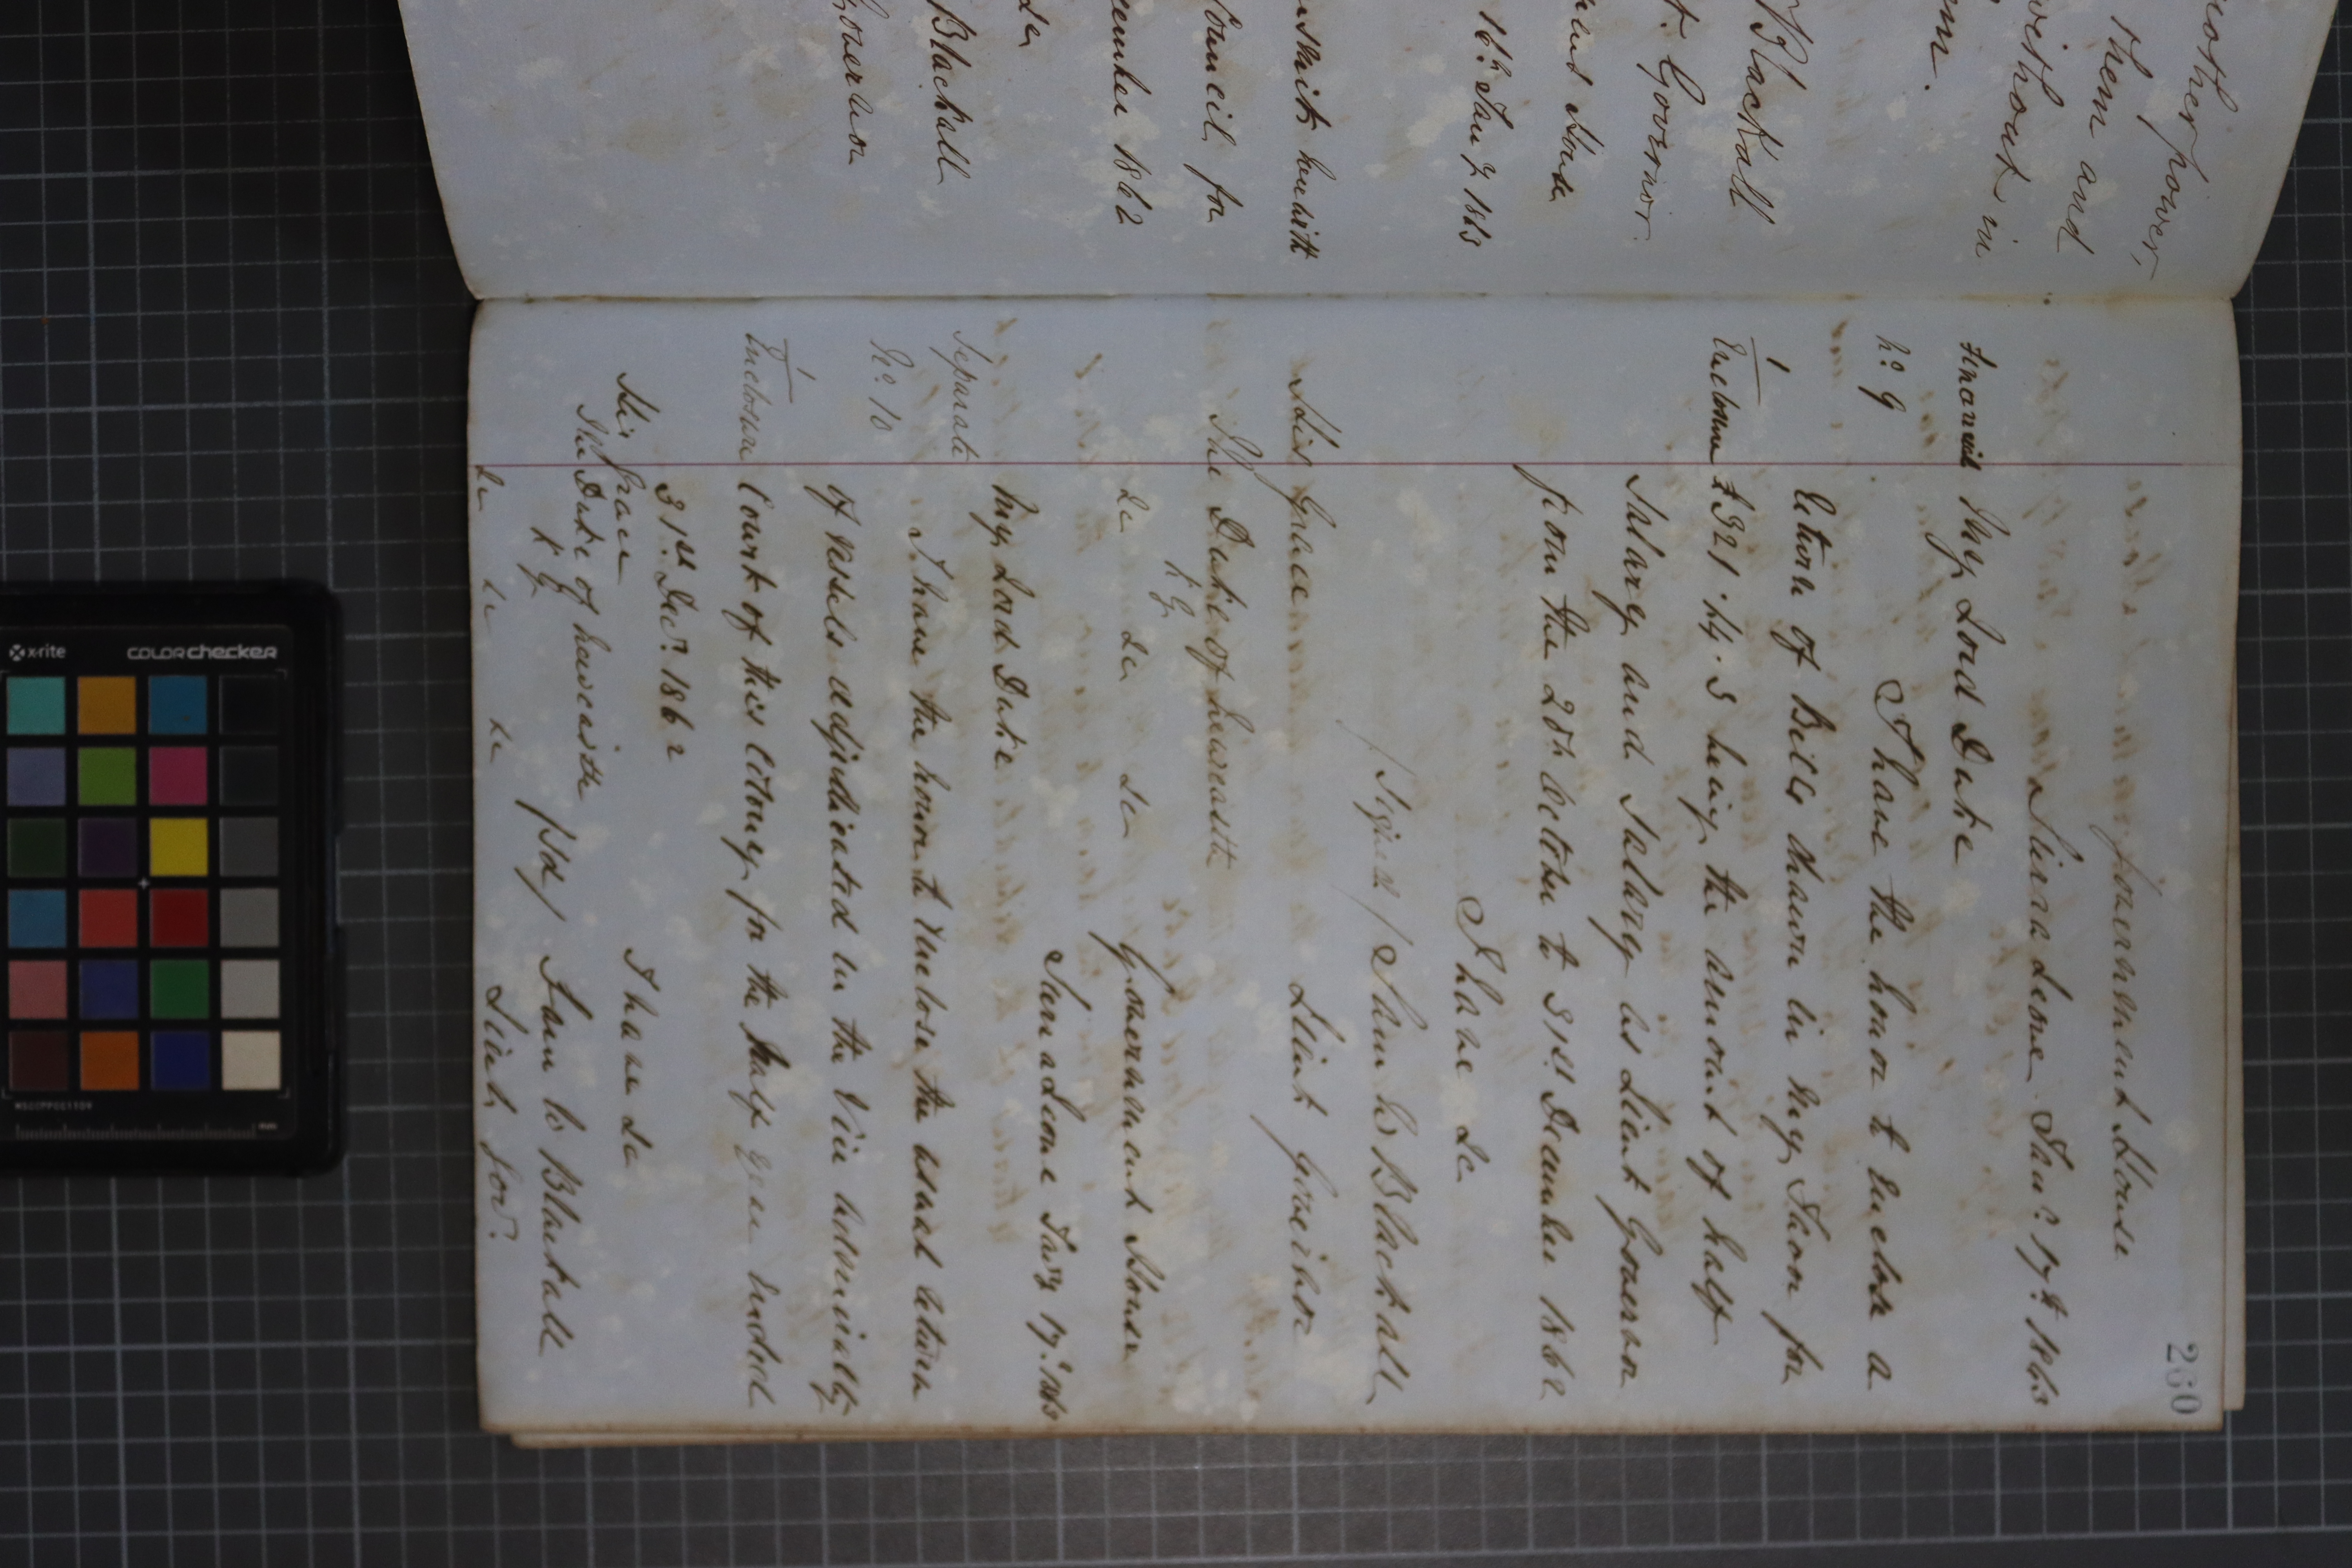 another power,
them and
without in
em.
Blackall
t. Governor.
ment House
16th Jany 1863
transmit herewith
Council for
cember 1862
&c
Blackall
Governor
260
Government House
Sierra Leone Jany 17th 1863
Financial My Lord Duke
No 9
I have the honor to enclose a
Return of Bills drawn in my favor for
1
Enclosure £321.14.3 being the amount of half
Salary and Salary as Lieut Governor
from the 28th October to 31st December 1862
I have &c
/Signed/ Sam W Blackall
Lieut Governor
His Grace
The Duke of Newcastle
K G
&c &c &c
Government House
Sierra Leone Jany 17th 1863
My Lord Duke
Separate
No 10
I have the honor to enclose the usual return
of vessels adjudicated in the Vice Admiralty
1
Enclosure Court of this Colony for the half year ended
31st Decr 1862
I have &c
His Grace
The Duke of Newcastle
K G
/sd/ Sam W Blackall
&c &c &c Lieut Govr.